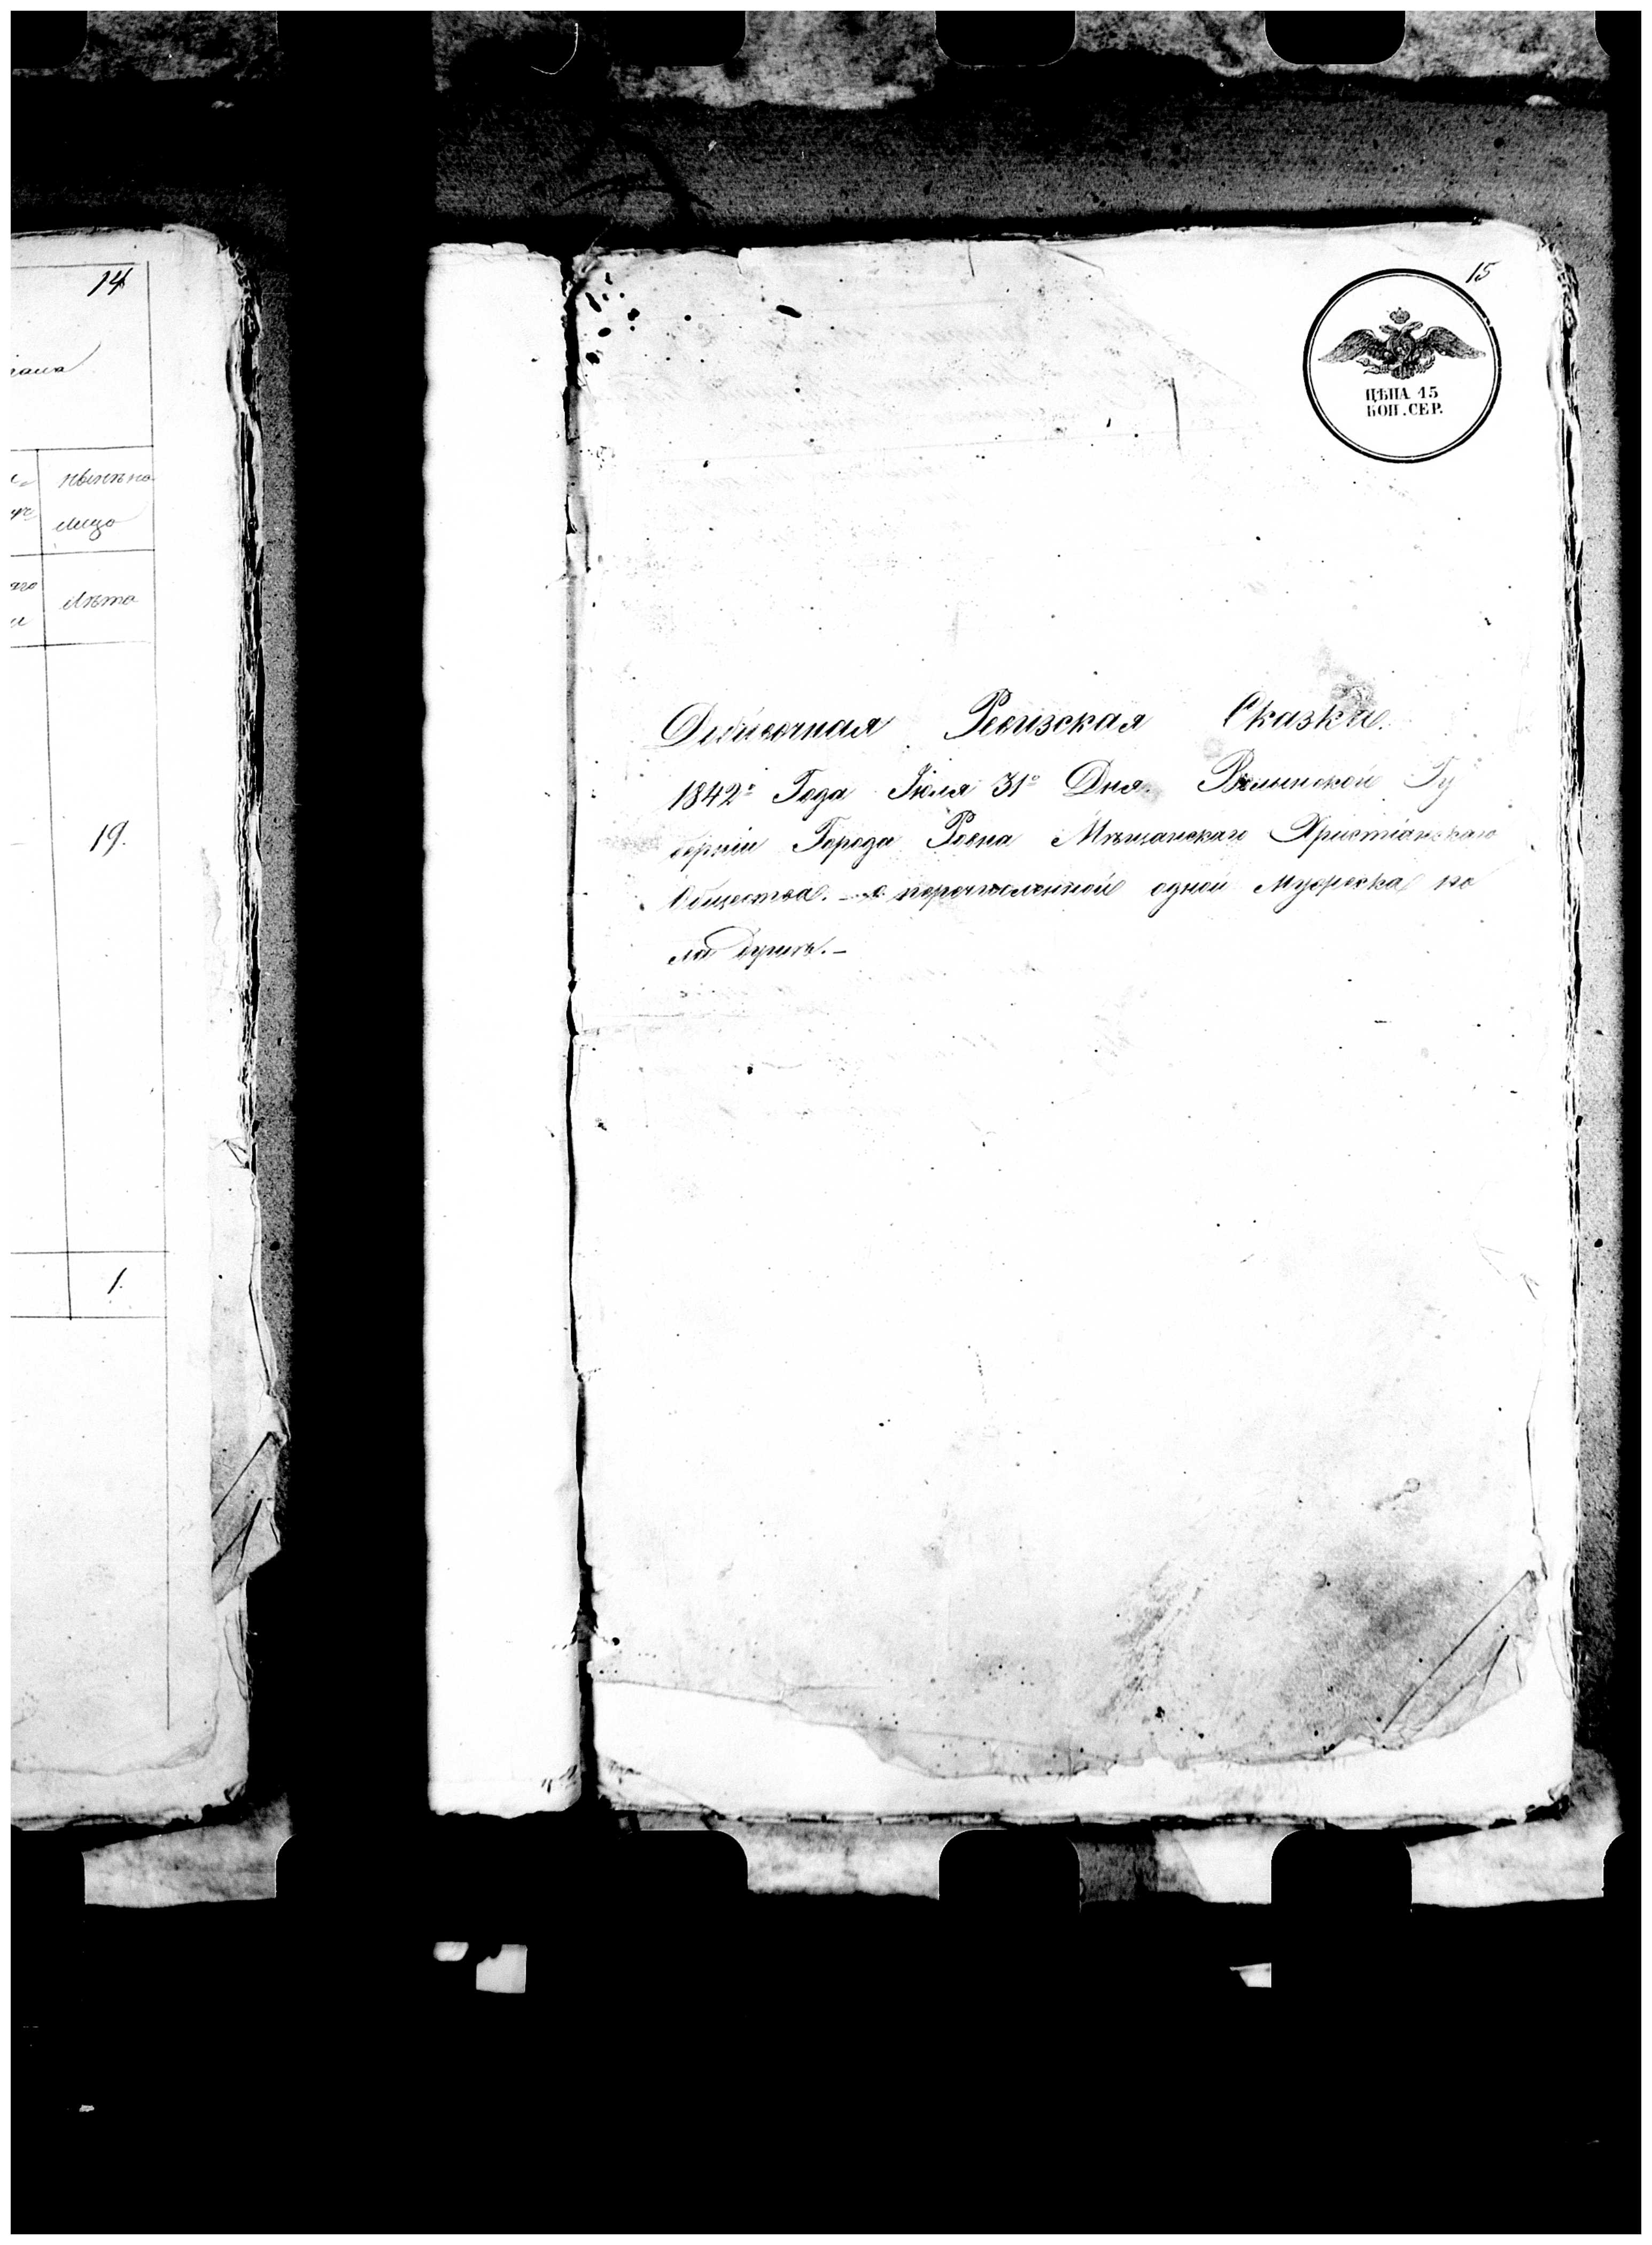 14
нынѣ на
лицо
лѣта
19.
1.
15
ЦѢНА 15
КОП. СЕР.
Ревизская Сказка.
1842го Года Іюля 31го Дня. Волынской Гу
берніи Города Ровна Мѣщанскаго Христіанскаго
Общества. – о перечисленной одной Мужеска по
ла душѣ. –